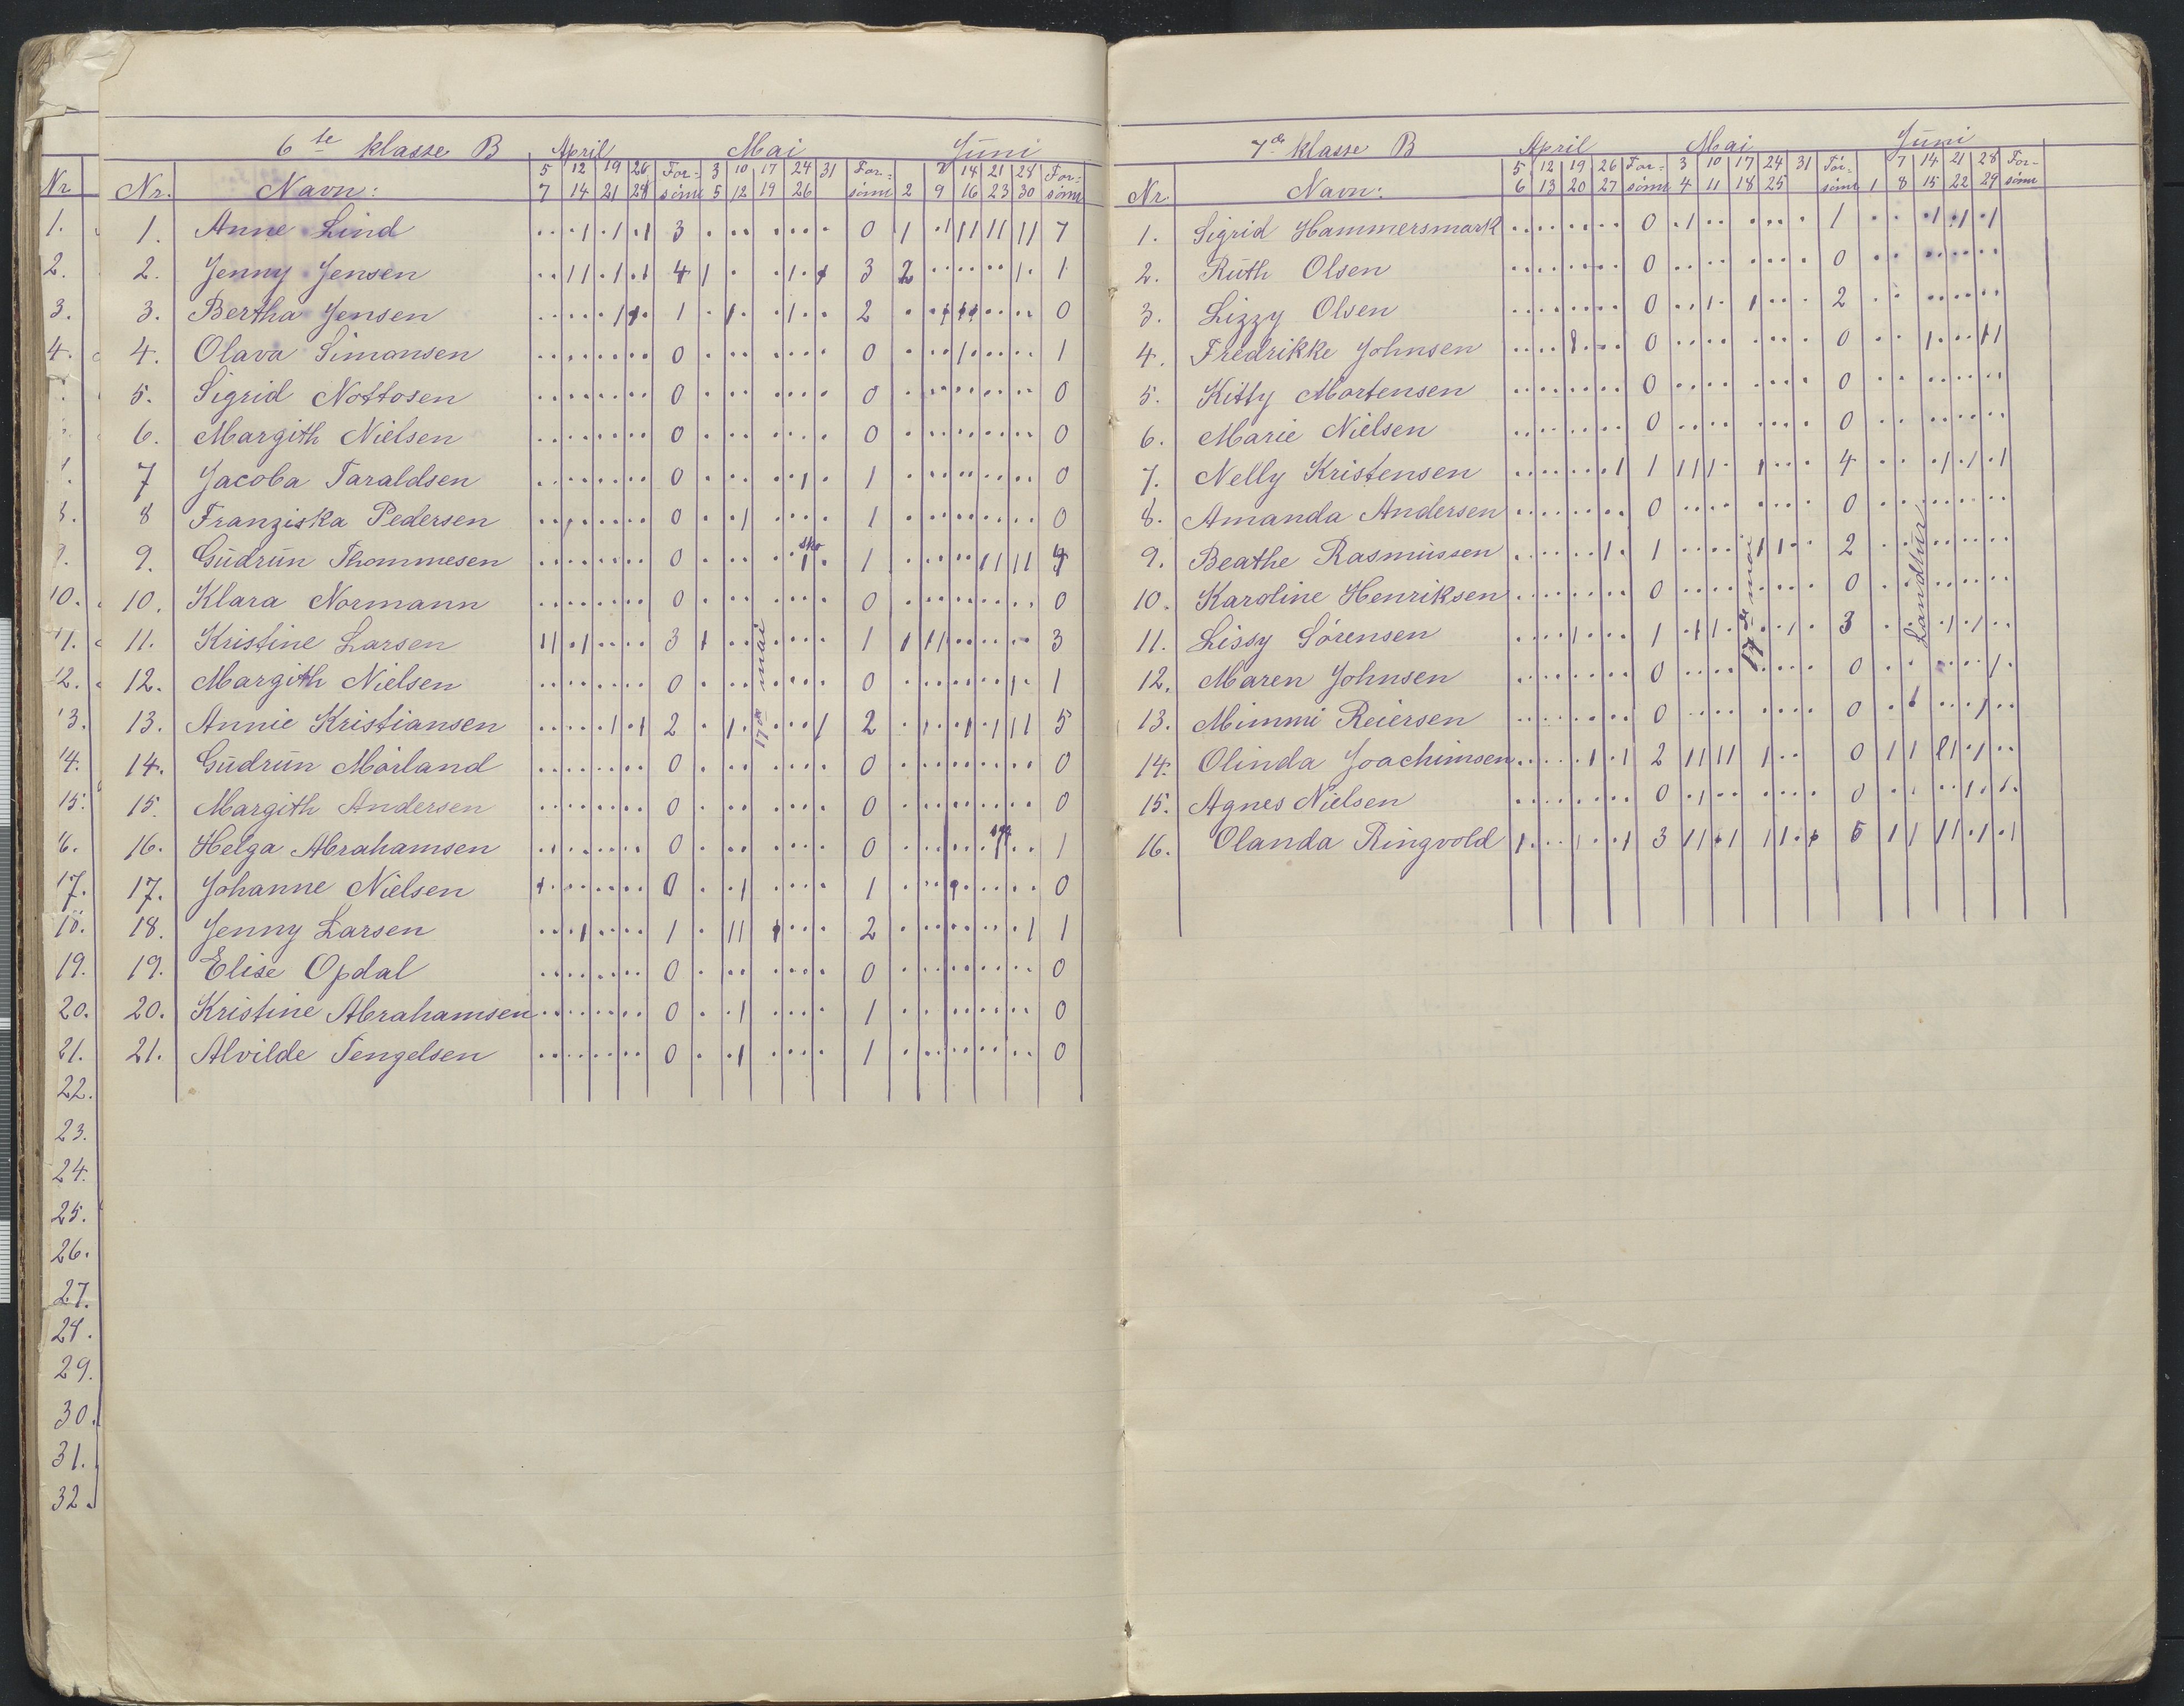 6te klasse B April Mai Juni
Nr. Navn: 5 12 19 26 For- 3 10 17 24 31 For- 7 14 21 28 For-
7 14 21 28 sömt 5 12 19 26 sömt 2 9 16 23 30 sömt
1. Anne Lind 3 0 7
2. Jenny Jensen 4 3 1
3. Bertha Jensen 1 2 0
4. Olava Simonsen 0 0 1
5. Sigrid Nottosen 0 0 0
6. Margith Nielsen 0 0 0
7 Jacoba Taraldsen 0 1 0
8 Franziska Pedersen 0 1 0
9. Gudrun Thommesen 0 1 4
10. Klara Normann 0 0 0
11. Kristine Larsen 3 1 3
12. Margith Nielsen 0 0 1
13. Annie Kristiansen 2 2 5
14. Gudrun Mörland 0 0 0
15. Margith Andersen 0 0 0
16. Helga Abrahamsen 0 0 1
17. Johanne Nielsen 0 1 0
18. Jenny Larsen 1 2 1
19. Elise Opdal 0 0 0
20. Kristine Abrahamsen 0 1 0
21. Alvilde Tengelsen 0 1 0
17de mai
7de klasse B April Mai Juni
Nr. Navn: 5 12 19 26 For- 3 10 17 24 31 För- 7 14 21 28 For-
6 13 20 27 sömt 4 11 18 25 sömt 1 8 15 22 29 sömt
1. Sigrid Hammersmark 0 1
2. Ruth Olsen 0 0
3. Lizzy Olsen 0 2
4. Fredrikke Johnsen 0 0
5. Kitty Mortensen 0 0
6. Marie Nielsen 0 0
7. Nelly Kristensen 1 4
8. Amanda Andersen 0 0
9. Beathe Rasmussen 1 2
10. Karoline Henriksen 0 0
11. Lissy Sörensen 1 3
12. Maren Johnsen 0 0
13. Mimmi Reiersen 0 0
14. Olinda Joachimsen 2 0
15. Agnes Nielsen 0 0
16. Olanda Ringvold 3 5
17de mai
Landtur
Nr
1.
2.
3.
4.
10.
11.
12.
13.
14.
15.
16.
17.
18.
19.
20.
21.
22.
23.
24.
25.
26.
27.
28.
29.
30.
31.
32.